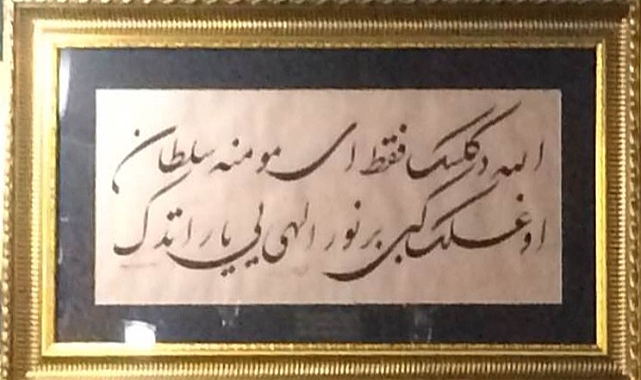 الله دكلسك فقط ای مومنه سلطان
اوغلك كبی بر نور الهی یی یاراتدك